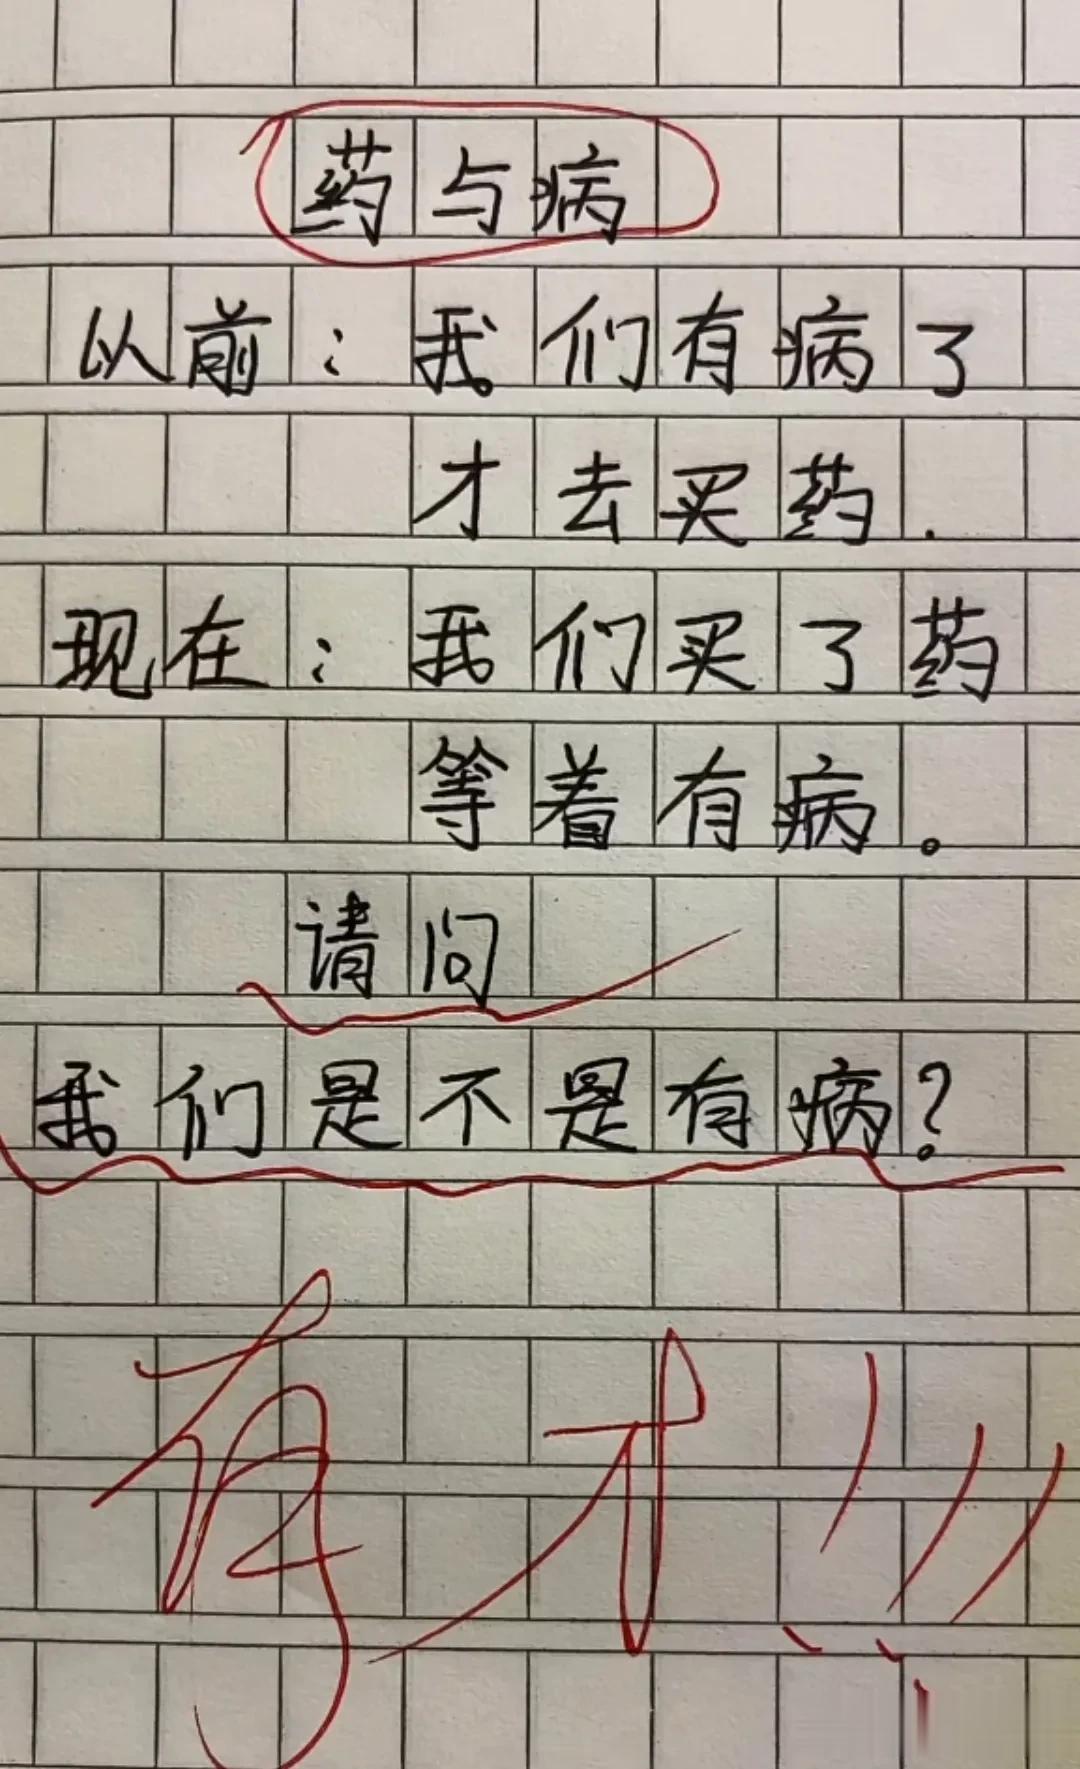 药与病
以前：我们有病了
才去买药.
现在：我们买了药
等着有病。
请问
我们是不是有病？
有才！！！